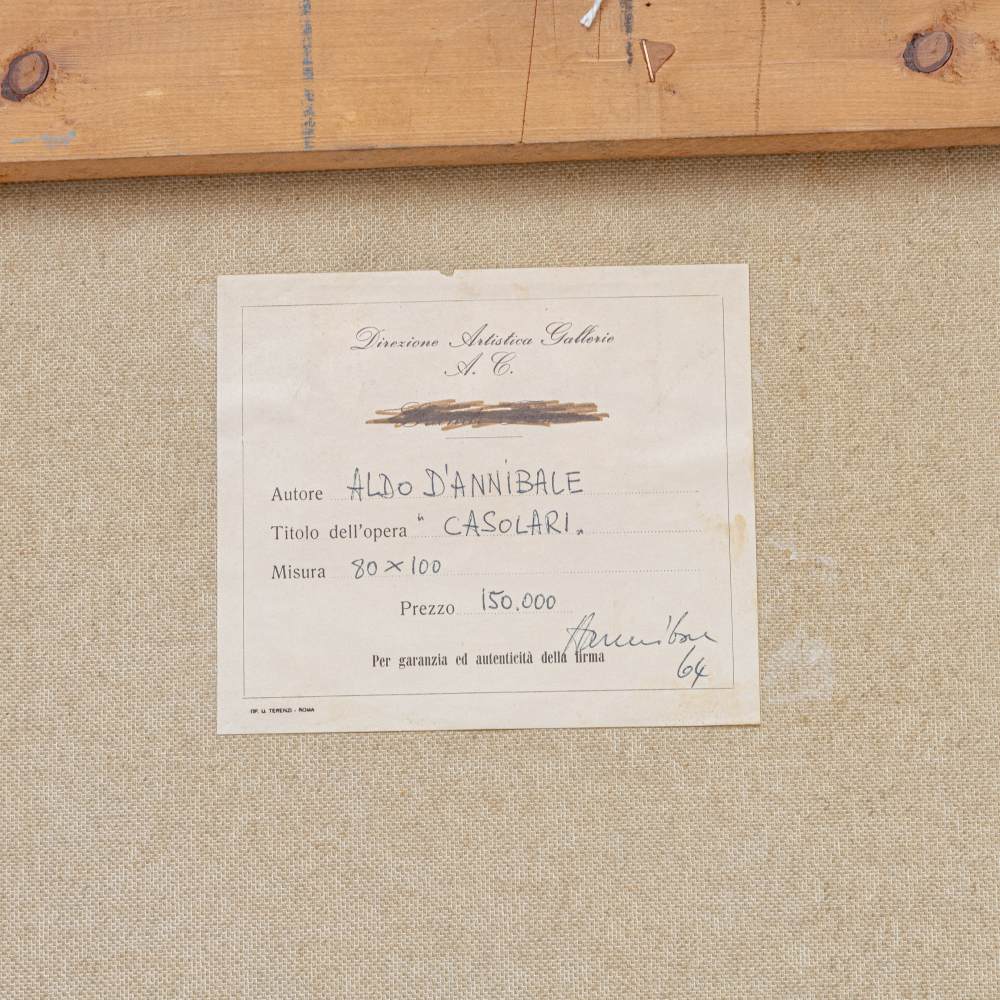 Direzione Artistica Gallerie
A. C.
Autore ALDO D'ANNIBALE
Titolo dell'opera " CASOLARI "
Misura 80 × 100
Prezzo 150.000
Per garanzia ed autenticità della firma
64
TIP. U. TERENZI - ROMA